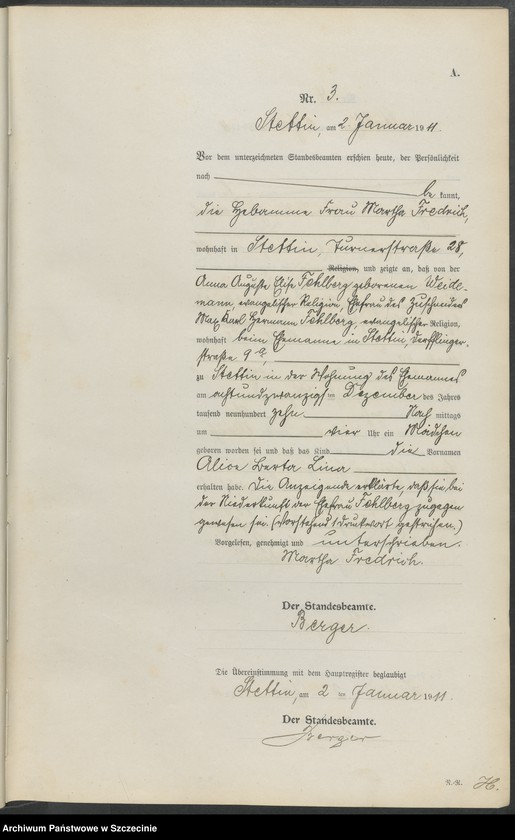 A.
Nr. 3.
Stettin, am 2. Januar 1911.
Vor dem unterzeichneten Standesbeamten erschien heute, der Persönlichkeit
nach be kannt,
die Hebamme Frau Martha Fredrich,
wohnhaft in Stettin, Turnerstraße 28,
Religion, und zeigte an, daß von der
Anna Auguste Elise Fehlberg geborenen Weide-
mann, evangelischer Religion, Ehefrau des
Max Karl Hermann Fehlberg, evangelischer Religion,
wohnhaft beim Ehemanne in Stettin, Derfflinger-
straße 9a,
zu Stettin in der Wohnung des Ehemannes
am achtundzwanzigsten Dezember des Jahres
tausend neunhundert zehn Nach mittags
um vier Uhr ein Mädchen
geboren worden sei und daß das Kind die Vornamen
Alice Berta Lina
erhalten habe. Die Anzeigende erklärte, daß sie bei
der Niederkunft der Ehefrau Fehlberg zugegen
gewesen sei. (Vorstehend 1 Druckwort gestrichen.)
Vorgelesen, genehmigt und unterschrieben.
Martha Fredrich.
Der Standesbeamte.
Berger.
Die Übereinstimmung mit dem Hauptregister beglaubigt
Stettin, am 2 ten Januar 1911.
Der Standesbeamte.
Berger
H.
Archiwum Państwowe w Szczecinie